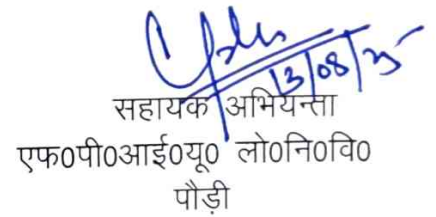 13/08/25
सहायक अभियन्ता
एफ0पी0आई0यू0 लो0नि0वि0
पौड़ी